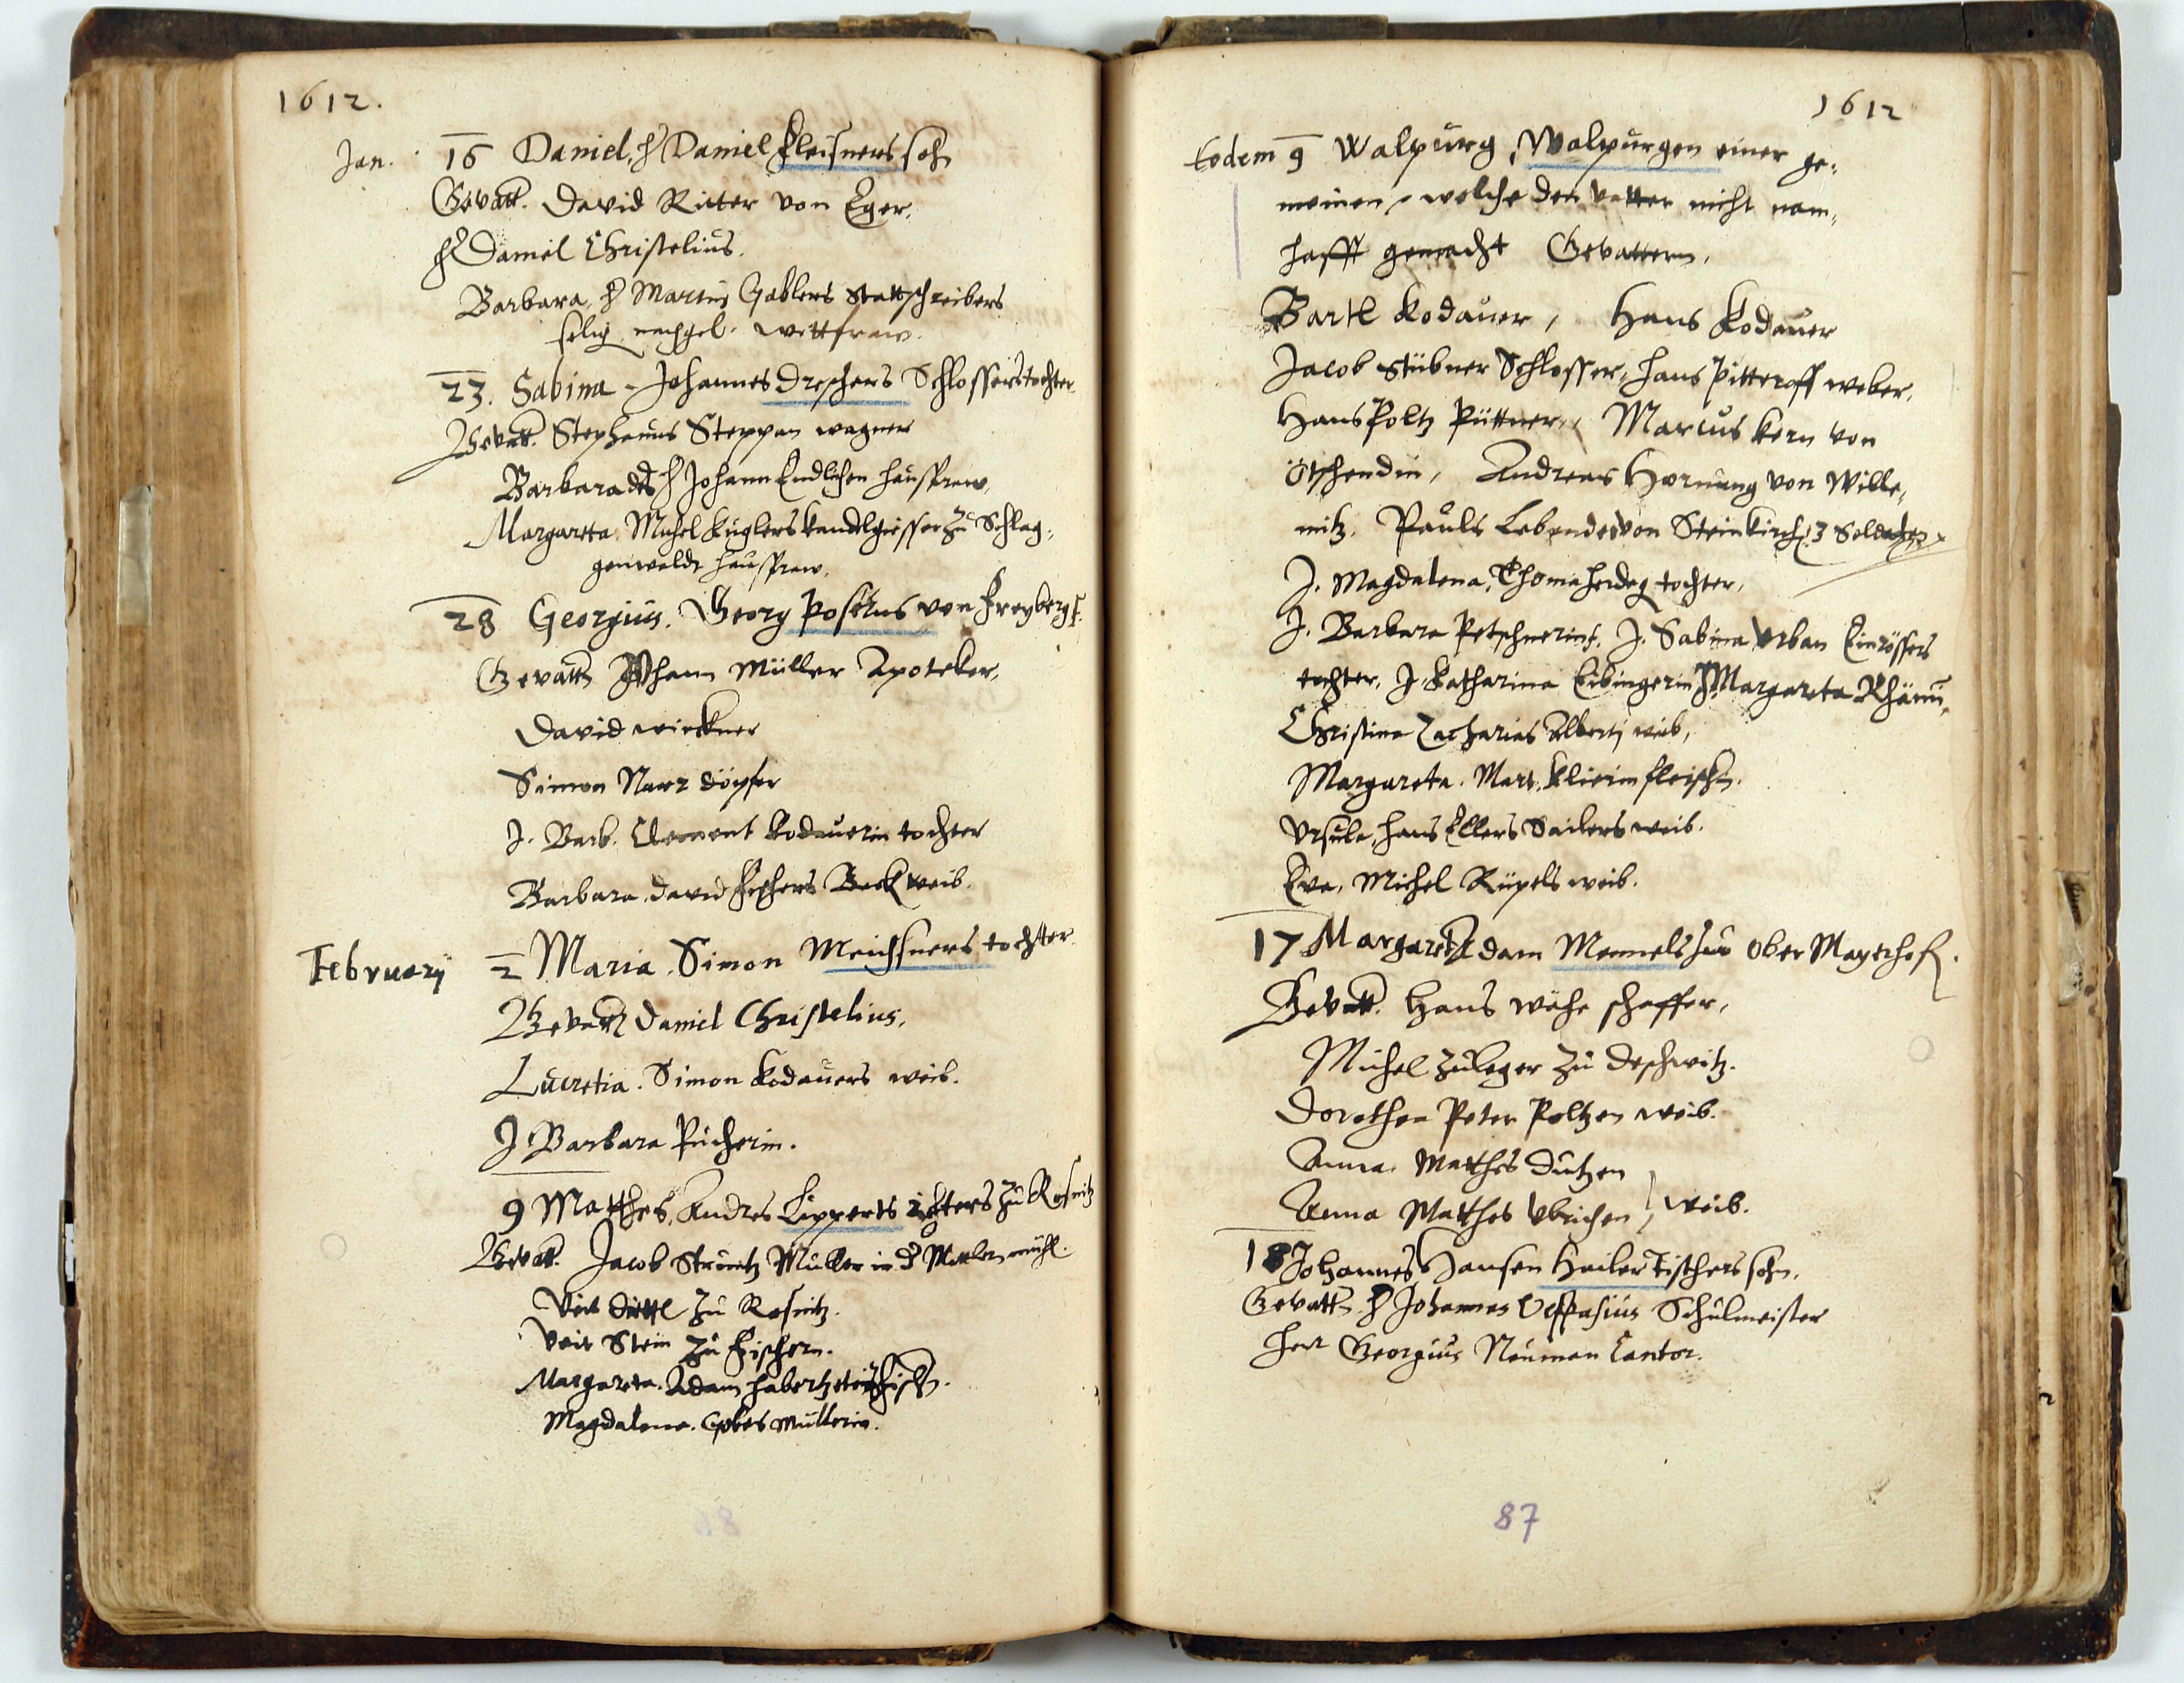 1612.
Jan. 16 Daniel, H Daniel Fleisners sohn
Gevatt. David Ritter von Eger,
H Daniel Christelius.
Barbara, H Martin Gablers Stattschreibers
selig nachgel. wittfraw.
23. Sabina - Johannes Dreschers Schlosserstochter.
Gevatt. Stephanus Steppan wagner
Barbara des H Johann Endlichen hausfraw,
Margareta Michel Kuglers kandelgiesser zu Schlag-
genwaldt hausfraw.
28 Georgius. Georg von Freyberg s.
Gevattn Johann Müller Apoteker,
David wirckner
Simon Narz döpfer
J. Barb. Clement Kodauerin tochter
Barbara. David Fischers Beck weib.
February 2 Maria. Simon Meichsners tochter
Gevattn Daniel Christelius,
Lucretia. Simon Kodauers weib.
J Barbara Pucherin.
9 Matthes, Andres Lipperts zu Rosnitz
Gevatt. Jacob Strüntz Müller in d
Veit Dietl zu Rosnitz.
Veit Stein zu Fischern.
Margareta. Adam
Magdalena. Müllerin.
1612
Eodem 9 Walpurg, Walpurgen einer ge-
meinen, welche den vatter nicht nam-
hafft gemacht Gevattern,
Bartl Kodauer, Hans Kodauer
Jacob Stübner Schlosser, Hans Pitteroff weber,
Hans Poltz Püttner, Marcus Kern von
Andreas Hornung von Wille-
mitz. Pauls Lebender von Steinkirch, 3 Soldaten
J. Magdalena, Thoma Herdeg tochter,
J. Barbara Petschnerin, J. Sabina Urban
tochter, J. Katharina Eibingerin J Margareta
Christina Zacharias Alberti weib,
Margareta. Mart. fleischn.
Ursula, Hans Ellers Sailers weib.
Eva, Michel Rüpels weib.
17 Margaret Adam Memels zu Ober Mayerhof.
Gevatt. Hans schaffer,
Michel Zuleger zu Deschwitz.
Dorothea Peter Poltzen weib.
Anna. Matthes Dutzen
Anna Matthes Ubrichen } weib.
18 Johannes Hansen Hailer Tischers sohn.
Gevattn. H Johannes Vespasius Schulmeister
Herr Georgius Neuman Cantor.
86
87